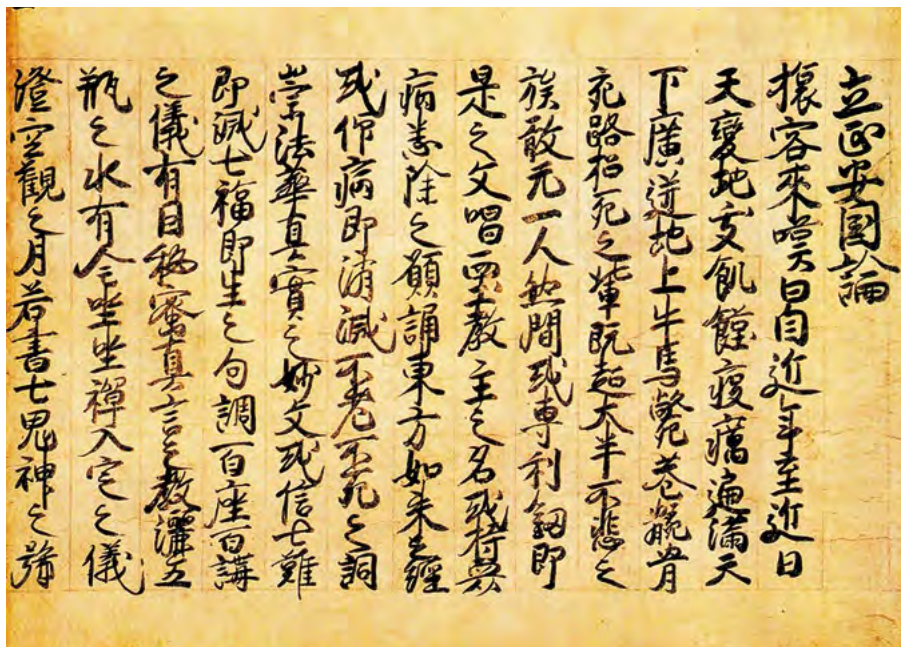 立正安國論
旅客來嘆曰自近年至近日
天變地夭飢饉疫癘遍滿天
下廣迸地上牛馬斃巷骸骨
充路招死之輩既超大半不悲之
族敢无一人然間或專利釼即
是之文唱西土教主之名或持衆
病悉除之願誦東方如来之經
或仰病即消滅不老不死之詞
崇法華真實之妙文或信七難
即滅七福即生之句調百座百講
之儀有因秘密真言之教灑五
瓶之水有全坐禪入定之儀
澄空觀之月若書七鬼神之號